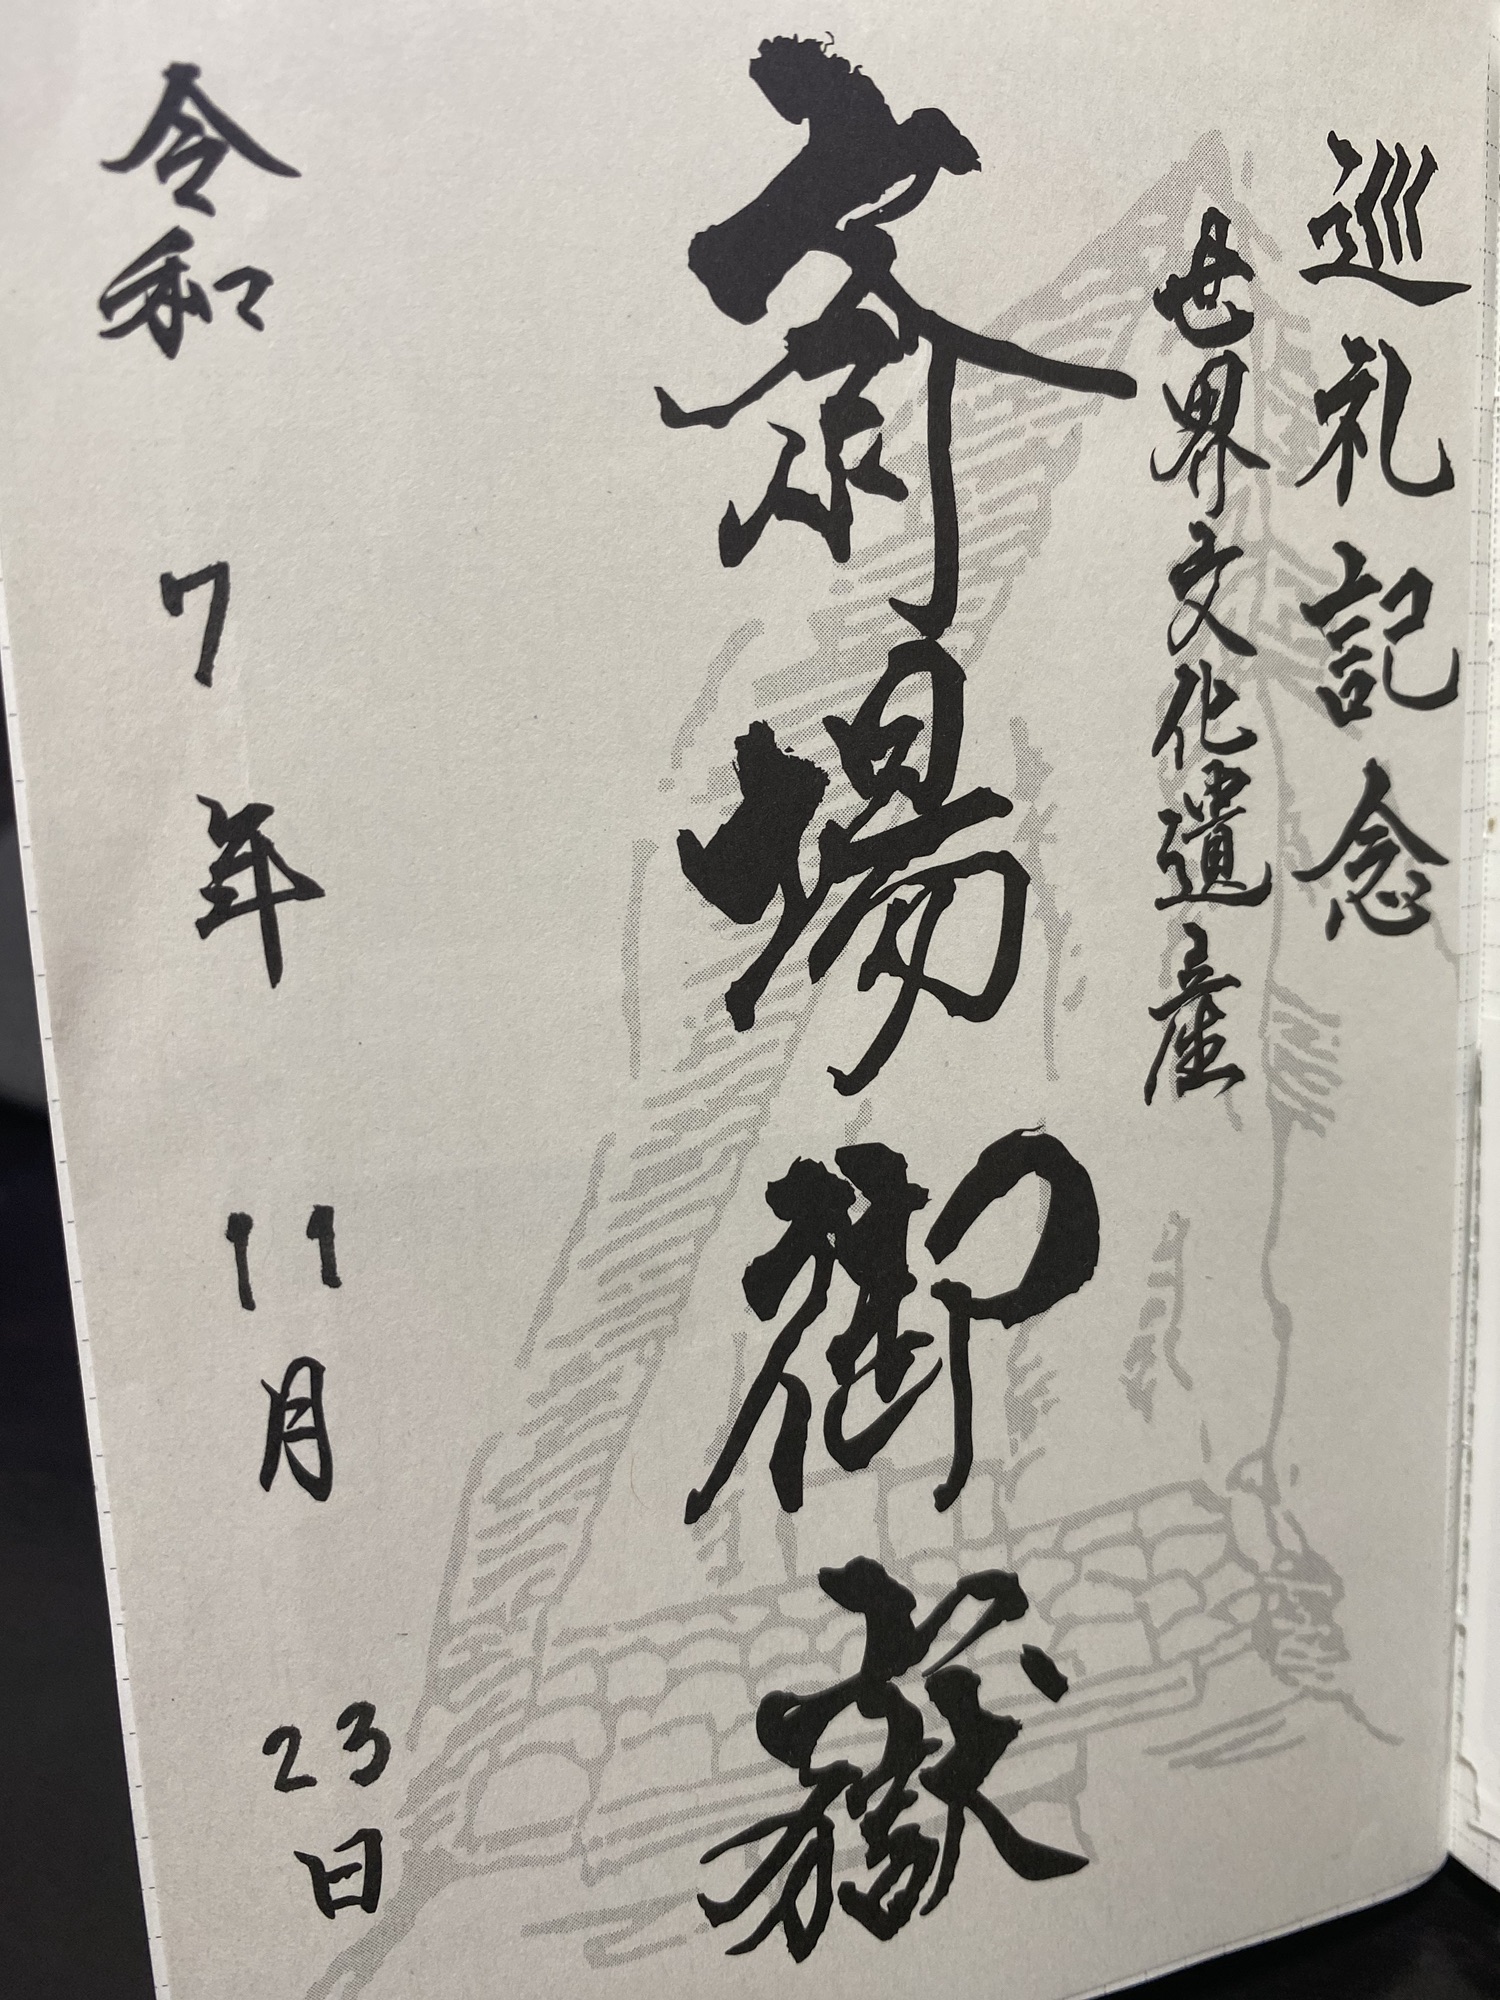 巡礼記念
世界文化遺産
斎場御嶽
令和7年11月23日